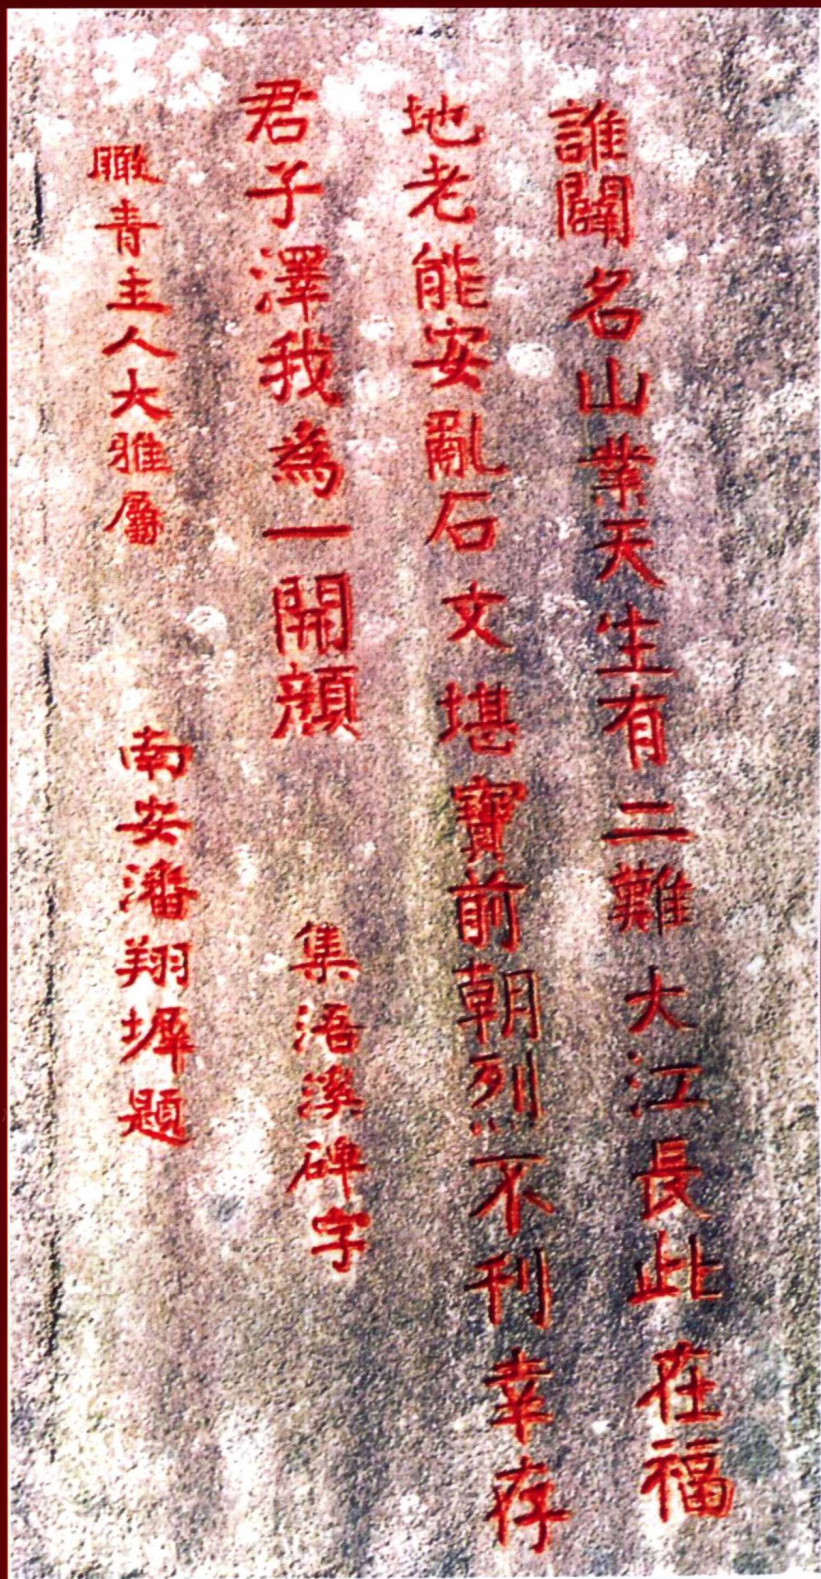 誰闢名山業天生有二難大江長此在福
地老能安亂石文堪寶前朝烈不刊幸存
君子澤我為一開顏 集浯溪碑字
瞰青主人大雅屬 南安潘翔墀題